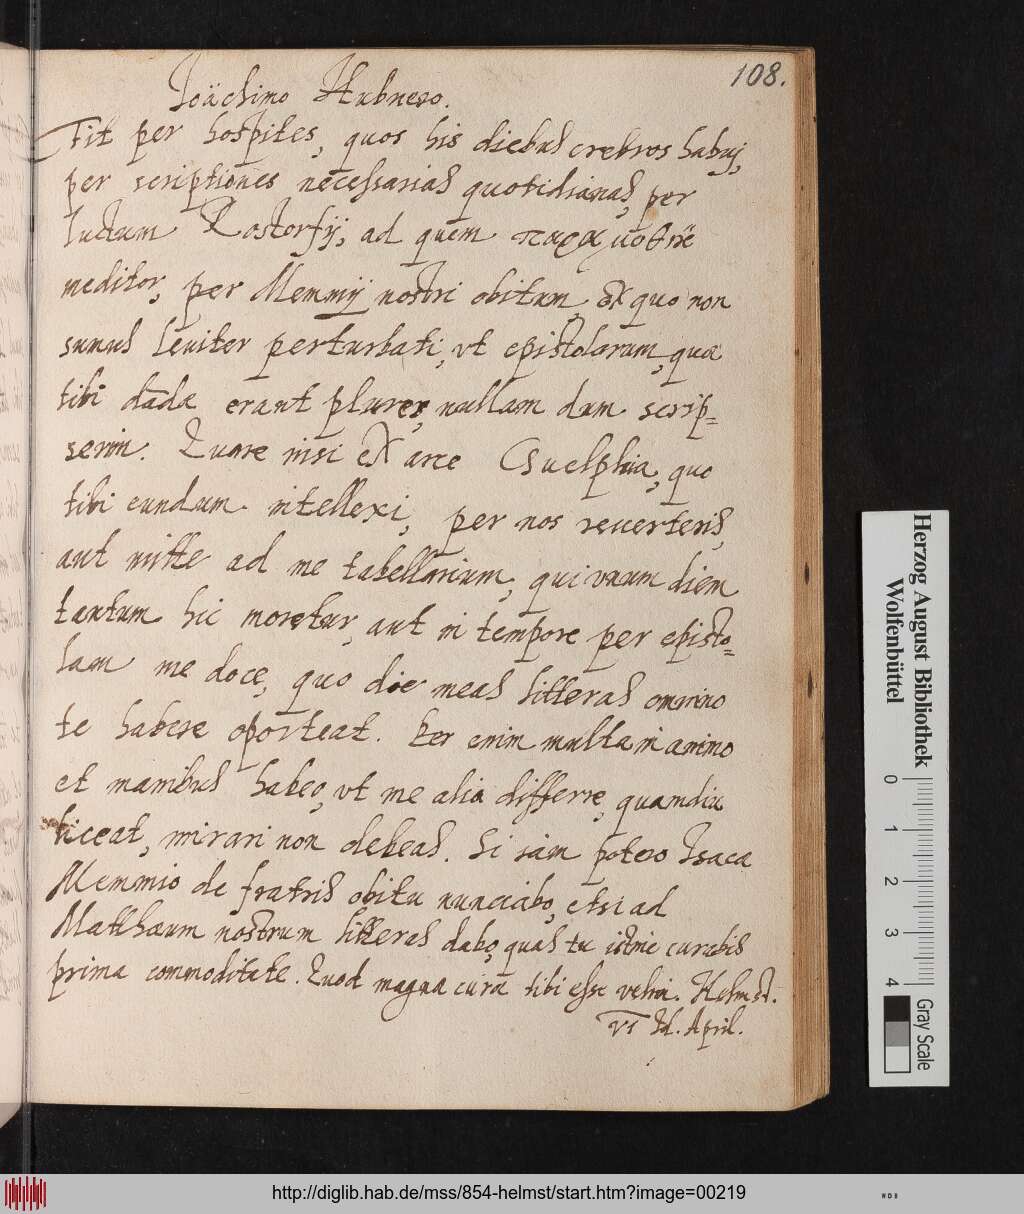 108.
Ioächimo Hubnero.
Fit per hospites, quos his diebus crebros habuj,
per scriptiones necessarias quotidianas, per
luctum Rostorfij, ad quem παραμυθητικὸν
meditor, per Memmij nostri obitum, ex quo non
sumus leuiter perturbati, vt epistolarum, quæ
tibi dādæ erant plures, nullam dum scrip=
serim. Quare nisi ex arce Guelphia, quo
tibi eundum intellexi, per nos reuerteris,
aut mitte ad me tabellarium, qui vnum diem
tantum hic moretur, aut in tempore per episto=
lam me doce, quo die meas litteras omnino
te habere oporteat. Ita enim multa in animo
et manibus habeo, vt me alia differre, quamdiu
liceat, mirari non debeas. Si iam potero Isaca
Memmio de fratris obitu nunciabo, etsi ad
Matthæum nostrum litteras dabo, quas tu istinc curabis
prima commoditate. Quod magnæ curæ tibi esse velim. Helmst.
VI Id. April.
Herzog August Bibliothek
Wolfenbüttel
0 1 2 3 4
Gray Scale
http://diglib.hab.de/mss/854-helmst/start.htm?image=00219